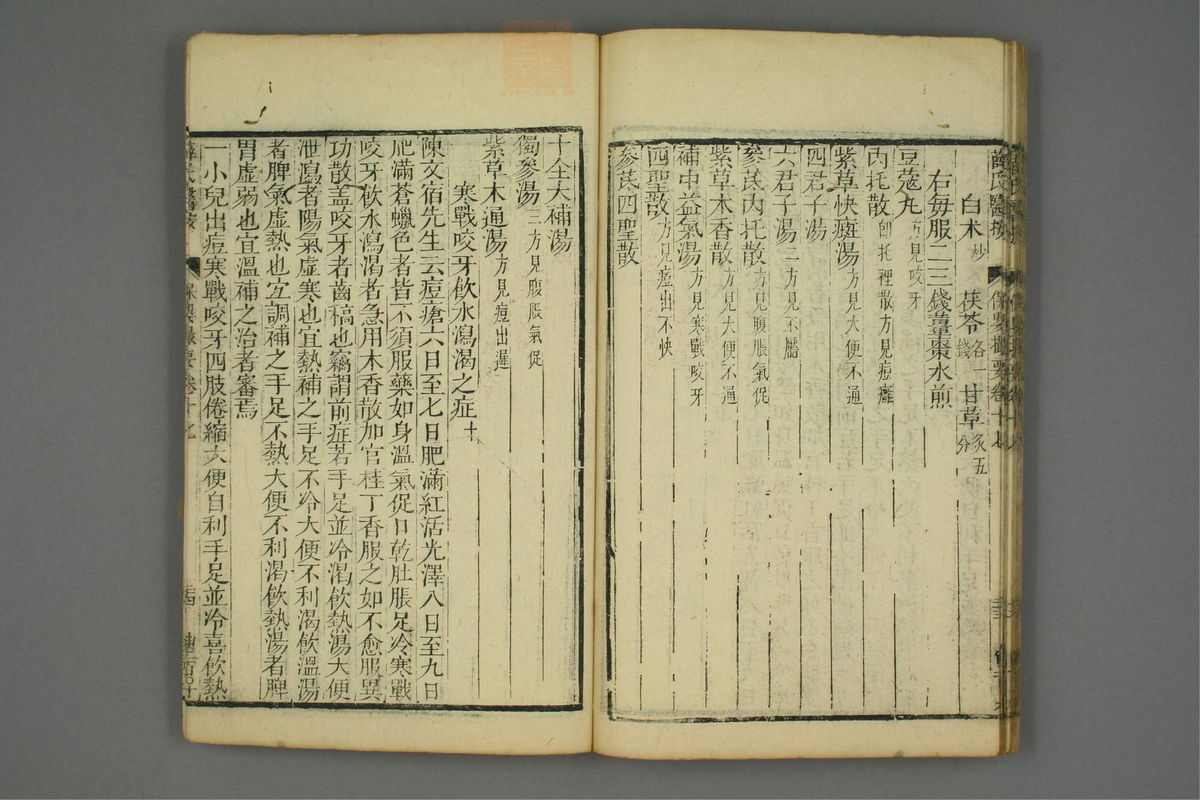 薛氏醫按 保嬰撮要卷十七
白术炒 茯苓各一錢 甘草炙五分
右每服二三錢薑棗水煎
豆蔻丸方見咬牙
內托散即托裡散方見痘癰
紫草快斑湯方見大便不通
四君子湯
六君子湯二方見不靨
參芪內托散方見腹脹氣促
紫草木香散方見大便不通
補中益氣湯方見寒戰咬牙
四聖散方見痘出不快
參芪四聖散
十全大補湯
獨參湯三方見腹脹氣促
紫草木通湯方見痘出遲
寒戰咬牙飲水瀉渴之症十
陳文宿先生云痘瘡六日至七日肥滿紅活光澤八日至九日
肥滿蒼蠟色者皆不須服藥如身溫氣促口乾肚脹足冷寒戰
咬牙飲水瀉渴者急用木香散加官桂丁香服之如不愈服異
功散盖咬牙者齒槁也竊謂前症若手足並冷渴飲熱湯大便
泄瀉者陽氣虛寒也宜熱補之手足不冷大便不利渴飲溫湯
者脾氣虛熱也宜調補之手足不熱大便不利渴飲熱湯者脾
胃虛弱也宜溫補之治者審焉
一小兒出痘寒戰咬牙四肢倦縮大便自利手足並冷喜飲熱
薛氏醫按 保嬰撮要卷十七